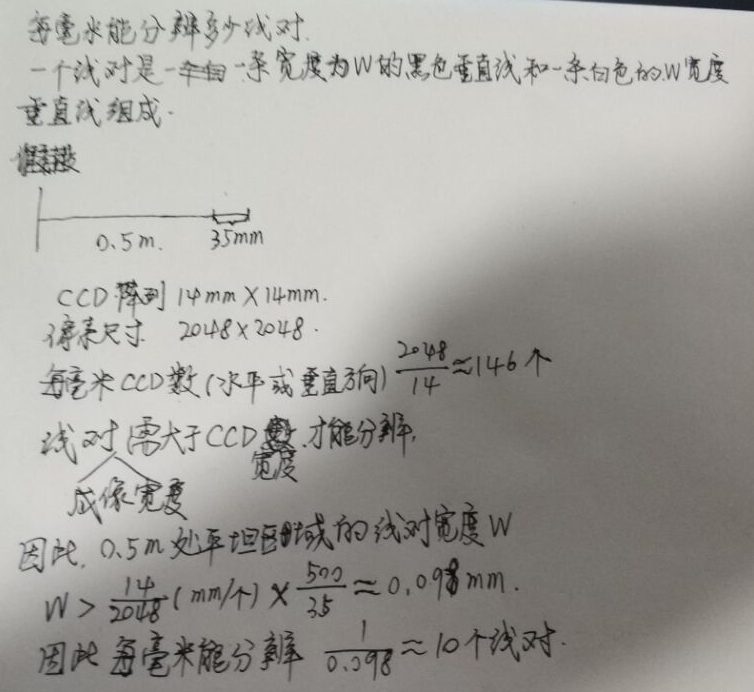 每毫米能分辨多少线对.
一个线对是一条宽度为W的黑色垂直线和一条白色的W宽度
垂直线组成.
0.5m. 35mm
CCD阵列 14mm×14mm.
像素尺寸 2048×2048.
每毫米CCD数(水平或垂直方向) 2048/14≈146个
线对需大于CCD 才能分辨,
宽度
成像宽度
因此, 0.5m处平坦区域的线对宽度W
W > 14/2048 (mm/个) × 500/35 ≈ 0.098mm.
因此 每毫米能分辨 1/0.098 ≈ 10个线对.